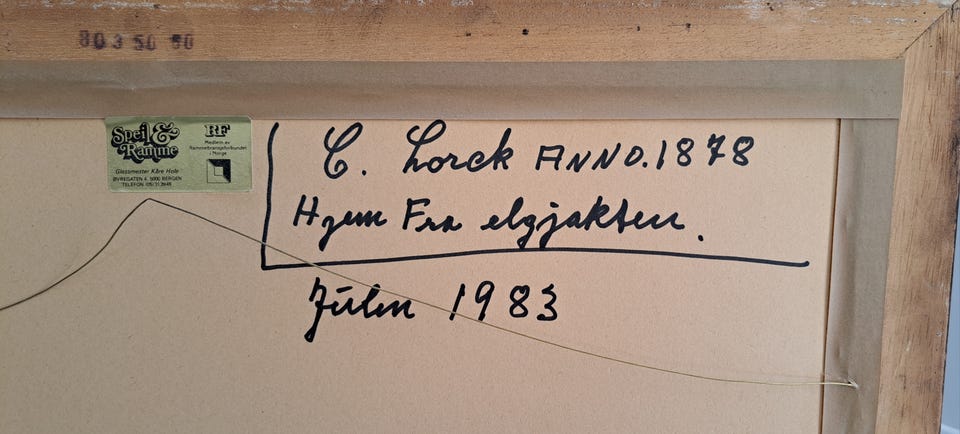 803 50 60
Speil &
Ramme
Glassmester Kåre Hole
ØVREGATEN 4, 5000 BERGEN
RF
Medlem av
Rammebransjeforbundet
i Norge
C. Lorck ANNO. 1878
Hjem Fra elgjakten.
Julen 1983